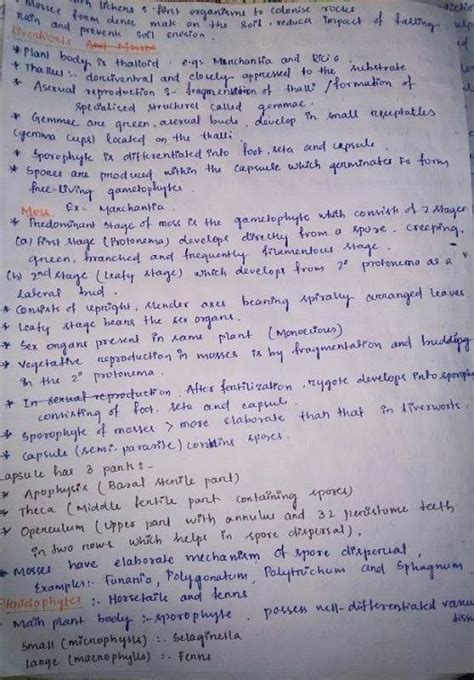 with lichens : first organisms to colonise rocks
* Mosses form dense mats on the soil, reduces impact of falling
Rain and prevent soil erosion.
Liverworts
* Plant body is thalloid. e.g:- Marchantia and Riccia
* Thallus :- dorsiventral and closely appressed to the substrate
* Asexual reproduction :- fragmentation of thalli / formation of
specialized structures called gemmae.
* Gemmae are green, asexual buds, develop in small receptables
(gemma cups) located on the thalli
* Sporophyte is differentiated into foot, seta and capsule
* Spores are produced within the capsule which germinates to form
free-living gametophytes.
Ex- Marchantia.
Moss
* Predominant stage of moss is the gametophyte which consist of 2 stages
(a) first stage (Protonema) develops directly from a spore. creeping,
green, branched and frequently filamentous stage.
(b) 2nd stage (Leafy stage) which develops from 2° protonema as a
lateral bud.
* Consists of upright, slender axes bearing spirally arranged leaves.
* Leafy stage bears the sex organs.
* Sex organs present in same plant (Monoecious)
* Vegetative reproduction in mosses is by fragmentation and budding
in the 2° protonema.
* In sexual reproduction, After fertilization, zygote develops into sporophyte
consisting of foot, seta and capsule.
* Sporophyte of mosses > more elaborate than that in liverworks.
* Capsule (semi-parasite) contains spores.
Capsule has 3 parts :-
* Apophysis (Basal sterile part)
* Theca (Middle fertile part containing spores)
* Operculum (Upper part with annulus and 32 peristome teeth
in two rows which helps in spore dispersal).
* Mosses have elaborate mechanism of spore dispersal,
Examples:- Funaria, Polygonatum, Polytrichum and Sphagnum
Pteridophytes :- Horsetails and ferns
Main plant body :- sporophyte, possess well-differentiated vascu
tiss
Small (microphylls) :- Selaginella
Large (macrophylls) :- Ferns